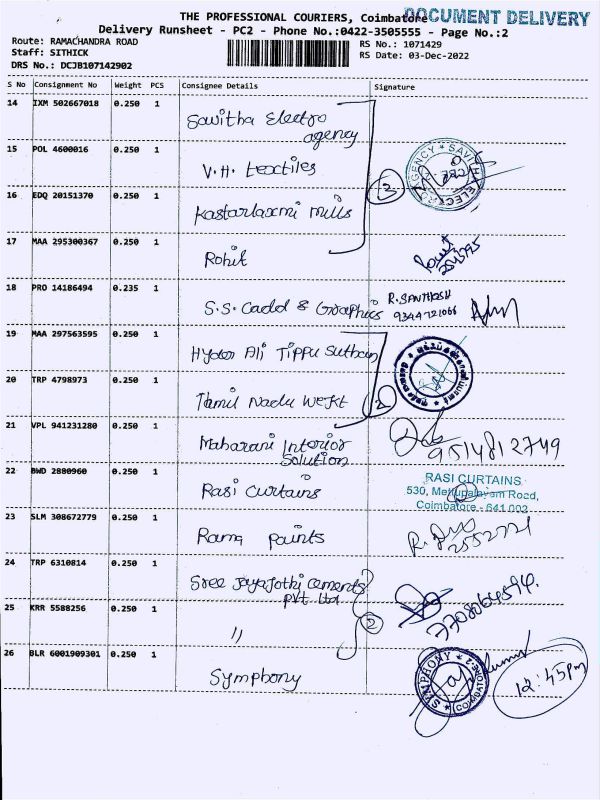 THE PROFESSIONAL COURIERS, Coimbatore
DOCUMENT DELIVERY
Delivery Runsheet - PC2 - Phone No.:0422-3505555 - Page No.:2
Route: RAMACHANDRA ROAD
Staff: SITHICK
DRS No.: DCJB107142902
RS No.: 1071429
RS Date: 03-Dec-2022
S No Consignment No Weight PCS Consignee Details Signature
14 IXM 502667018 0.250 1 Savitha Electro
agency
15 POL 4600016 0.250 1 V.H. textiles
16 EDQ 20151370 0.250 1 Kastarlaxmi mills
3
17 MAA 295300367 0.250 1 Rohit
18 PRO 14186494 0.235 1 S.S. Cadd & Graphics R. SANTHOSH
9344721066
19 MAA 297563595 0.250 1 Hyder Ali Tippu Sulthan
20 TRP 4798973 0.250 1 Tamil Nadu
21 VPL 941231280 0.250 1 Maharani Interior
Solution
9514812749
22 BWD 2880960 0.250 1 Rasi Curtains
RASI CURTAINS
530, Mettupalayam Road,
Coimbatore - 641 002
23 SLM 308672779 0.250 1 Rama paints
2552721
24 TRP 6310814 0.250 1 Sree Jayajothi cements
pvt ltd
2
25 KRR 5588256 0.250 1 "
26 BLR 6001909301 0.250 1 Symphony
SYMPHONY
COIMBATORE-2
12:45pm